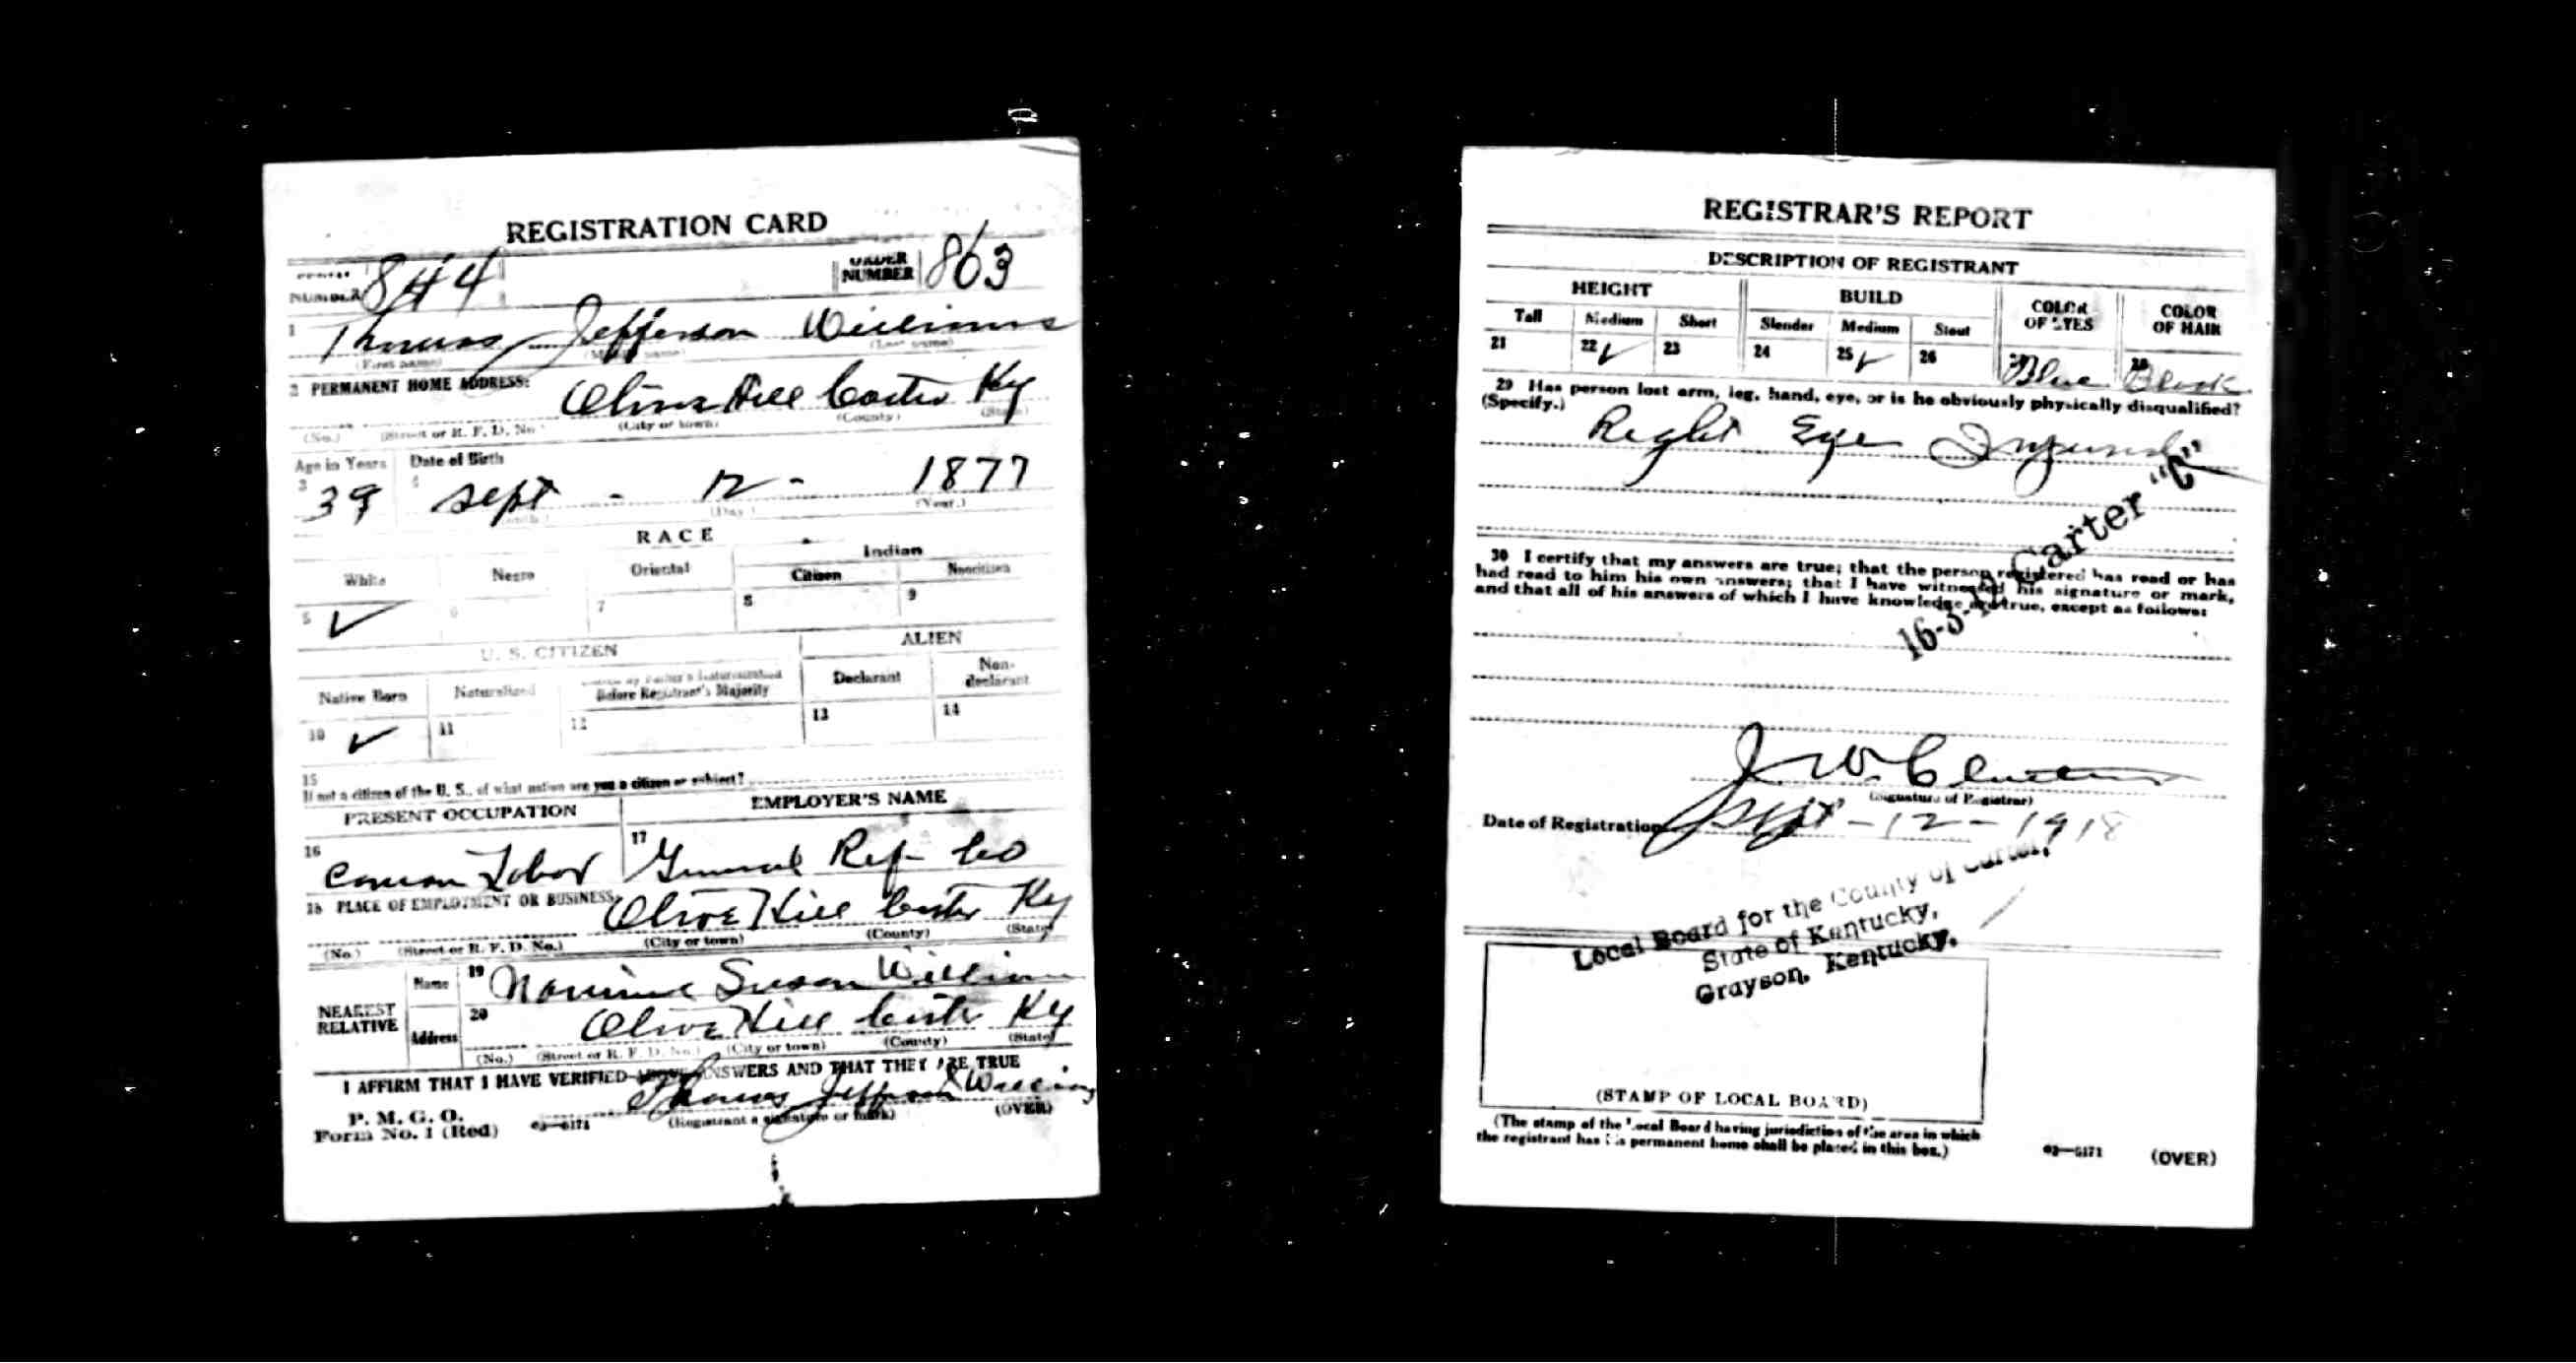 REGISTRATION CARD
NUMBER 844 ORDER NUMBER 863
1 Thomas Jefferson Williams
(First name) (Middle name) (Last name)
2 PERMANENT HOME ADDRESS:
Olive Hill Carter Ky
(No.) (Street or R. F. D. No.) (City or town) (County) (State)
Age in Years Date of Birth
3 39 4 Sept - 12 - 1877
(Day.) (Year.)
RACE
White Negro Oriental Indian
Citizen Noncitizen
5 ✓ 6 7 8 9
U. S. CITIZEN ALIEN
Native Born Naturalized Citizen by Father's Naturalization Before Registrant's Majority Declarant Non-declarant
10 ✓ 11 12 13 14
15
If not a citizen of the U. S., of what nation are you a citizen or subject?
PRESENT OCCUPATION EMPLOYER'S NAME
16 Common Labor 17 General Ref Co
18 PLACE OF EMPLOYMENT OR BUSINESS:
Olive Hill Carter Ky
(No.) (Street or R. F. D. No.) (City or town) (County) (State)
NEAREST RELATIVE
Name 19 Susan William
Address 20 Olive Hill Carter Ky
(No.) (Street or R. F. D. No.) (City or town) (County) (State)
I AFFIRM THAT I HAVE VERIFIED ABOVE ANSWERS AND THAT THEY ARE TRUE
P. M. G. O.
Form No. 1 (Red) 03—6171 Thomas Jefferson Williams
(Registrant's signature or mark) (OVER)
REGISTRAR'S REPORT
DESCRIPTION OF REGISTRANT
HEIGHT BUILD COLOR OF EYES COLOR OF HAIR
Tall Medium Short Slender Medium Stout
21 22 ✓ 23 24 25 ✓ 26 Blue Black
29 Has person lost arm, leg, hand, eye, or is he obviously physically disqualified?
(Specify.)
Right Eye Injured
16-3-12 Carter "C"
30 I certify that my answers are true; that the person registered has read or has
had read to him his own answers; that I have witnessed his signature or mark,
and that all of his answers of which I have knowledge are true, except as follows:
J W
(Signature of Registrar)
Date of Registration Sept - 12 - 1918
Local Board for the County of Carter,
State of Kentucky,
Grayson, Kentucky.
(STAMP OF LOCAL BOARD)
(The stamp of the Local Board having jurisdiction of the area in which
the registrant has his permanent home shall be placed in this box.)
03—6171 (OVER)